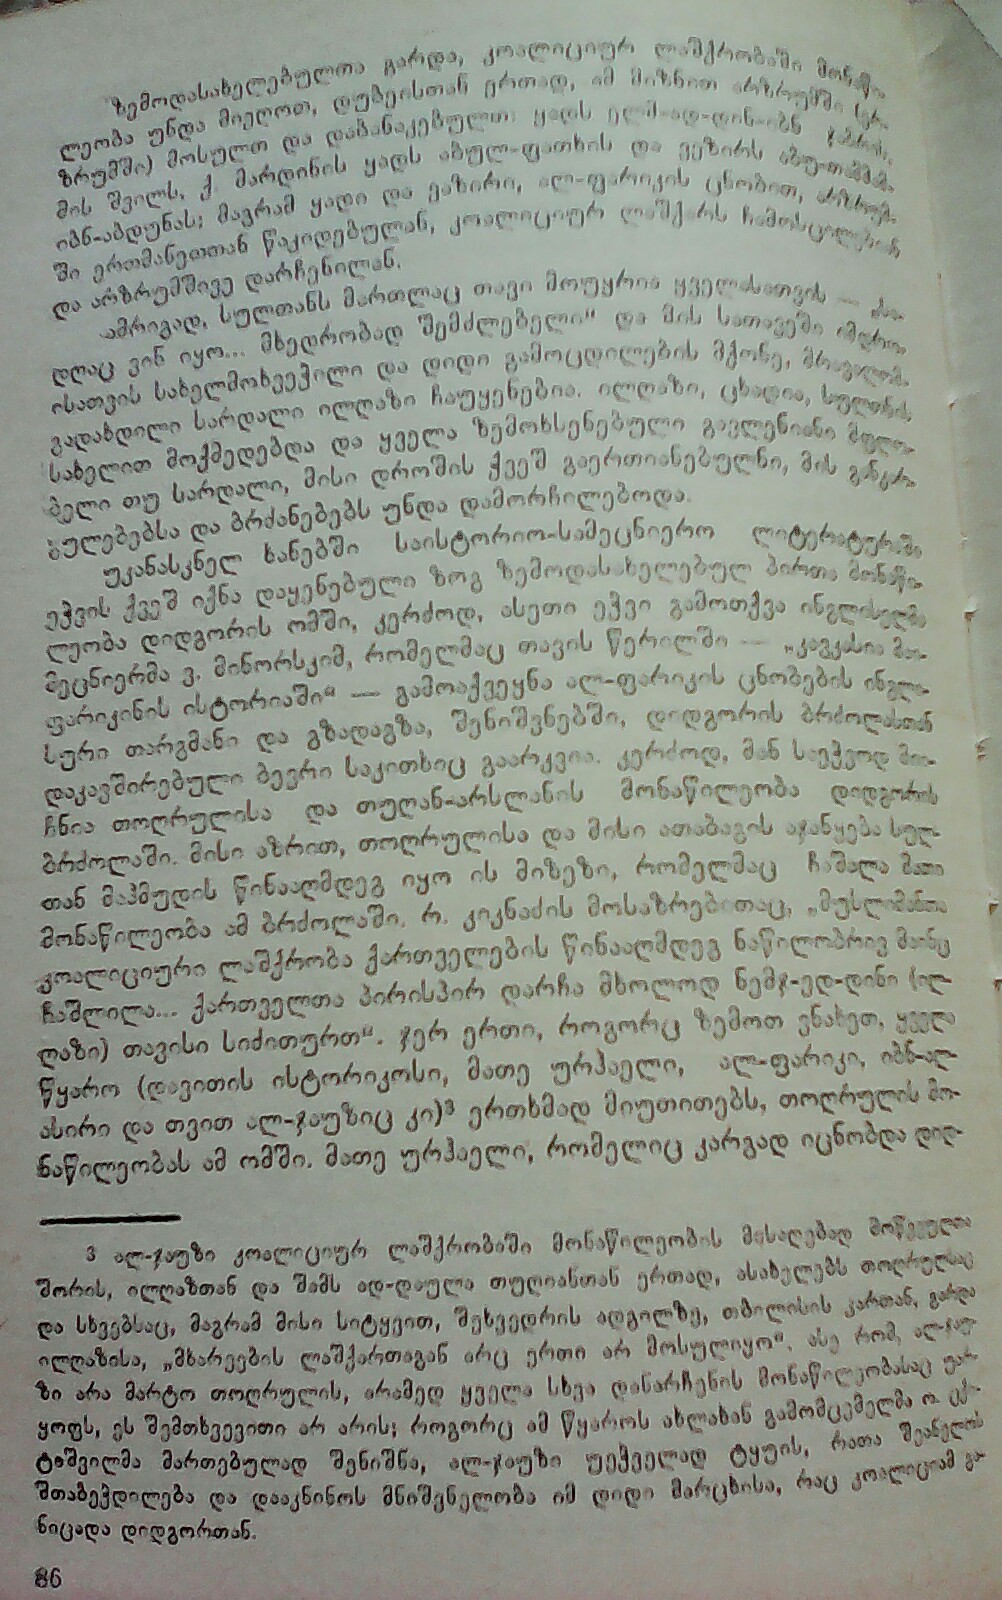 ზემოდასახელებულთა გარდა, კოალიციურ ლაშქრობაში მონაწი-
ლეობა უნდა მიეღოთ, დუბეისთან ერთად, ამ მიზნით არზრუმში (ერ-
ზრუმში) მოსულთ და დაბანაკებულთ: ყადს ელმ-ად-დინ-იბნ
მის შვილს, ქ. მარდინის ყადს აბულ-ფათხის და ვეზირს აბუ-თამამ-
იბნ-აბდუნას; მაგრამ ყადი და ვაზირი, ალ-ფარიკის ცნობით, არზრუმ-
ში ერთმანეთთან წაკიდებულან, კოალიციურ ლაშქარს ჩამოსცილებიან
და არზრუმშივე დარჩენილან.
ამრიგად, სულთანს მართლაც თავი მოუყრია ყველასათვის —
დღაც ვინ იყო... მხედრობად შემძლებელი“ და მის სათავეში იმდრო-
ისათვის სახელმოხვეჭილი და დიდი გამოცდილების მქონე, მრავალომ-
გადახდილი სარდალი ილღაზი ჩაუყენებია. ილღაზი, ცხადია, სულთნის
სახელით მოქმედებდა და ყველა ზემოხსენებული გავლენიანი მფლო-
ბელი თუ სარდალი, მისი დროშის ქვეშ გაერთიანებულნი, მის განკარ-
გულებებსა და ბრძანებებს უნდა დამორჩილებოდა.
უკანასკნელ ხანებში საისტორიო-სამეცნიერო ლიტერატურაში
ეჭვის ქვეშ იქნა დაყენებული ზოგ ზემოდასახელებულ პირთა მონაწი-
ლეობა დიდგორის ომში, კერძოდ, ასეთი ეჭვი გამოთქვა ინგლისელმა
მეცნიერმა ვ. მინორსკიმ, რომელმაც თავის წერილში — „კავკასია მაი-
ფარიკინის ისტორიაში“ — გამოაქვეყნა ალ-ფარიკის ცნობების ინგლი-
სური თარგმანი და გზადაგზა, შენიშვნებში, დიდგორის ბრძოლასთან
დაკავშირებული ბევრი საკითხიც გაარკვია. კერძოდ, მან საეჭვოდ მიი-
ჩნია თოღრულისა და თუღან-არსლანის მონაწილეობა დიდგორის
ბრძოლაში. მისი აზრით, თოღრულისა და მისი ათაბაგის აჯანყება სულ-
თან მაჰმუდის წინააღმდეგ იყო ის მიზეზი, რომელმაც ჩაშალა მათი
მონაწილეობა ამ ბრძოლაში. რ. კიკნაძის მოსაზრებითაც, „მუსლიმანთა
კოალიციური ლაშქრობა ქართველების წინააღმდეგ ნაწილობრივ მაინც
ჩაშლილა... ქართველთა პირისპირ დარჩა მხოლოდ ნემჯ-ედ-დინი (ილ-
ღაზი) თავისი სიძითურთ“. ჯერ ერთი, როგორც ზემოთ ვნახეთ, ყველა
წყარო (დავითის ისტორიკოსი, მათე ურჰაელი, ალ-ფარიკი, იბნ-ალ-
ასირი და თვით ალ-ჯაუზიც კი)³ ერთხმად მიუთითებს, თოღრულის მო-
ნაწილეობას ამ ომში. მათე ურჰაელი, რომელიც კარგად იცნობდა დიდ-
3 ალ-ჯაუზი კოალიციურ ლაშქრობაში მონაწილეობის მისაღებად მოწვეულთა
შორის, ილღაზთან და შამს ად-დაულა თუღიანთან ერთად, ასახელებს თოღრულსაც
და სხვებსაც, მაგრამ მისი სიტყვით, შეხვედრის ადგილზე, თბილისის კართან, გარდა
ილღაზისა, „მხარეების ლაშქართაგან არც ერთი არ მოსულიყო“. ასე რომ, ალ-ჯაუ-
ზი არა მარტო თოღრულის, არამედ ყველა სხვა დანარჩენის მონაწილეობასაც უარ-
ყოფს, ეს შემთხვევითი არ არის; როგორც ამ წყაროს ახლახან გამომცემელმა ო. ცქი-
ტიშვილმა მართებულად შენიშნა, ალ-ჯაუზი უეჭველად ტყუის, რათა შეანელოს
შთაბეჭდილება და დააკნინოს მნიშვნელობა იმ დიდი მარცხისა, რაც კოალიციამ გა-
ნიცადა დიდგორთან.
86